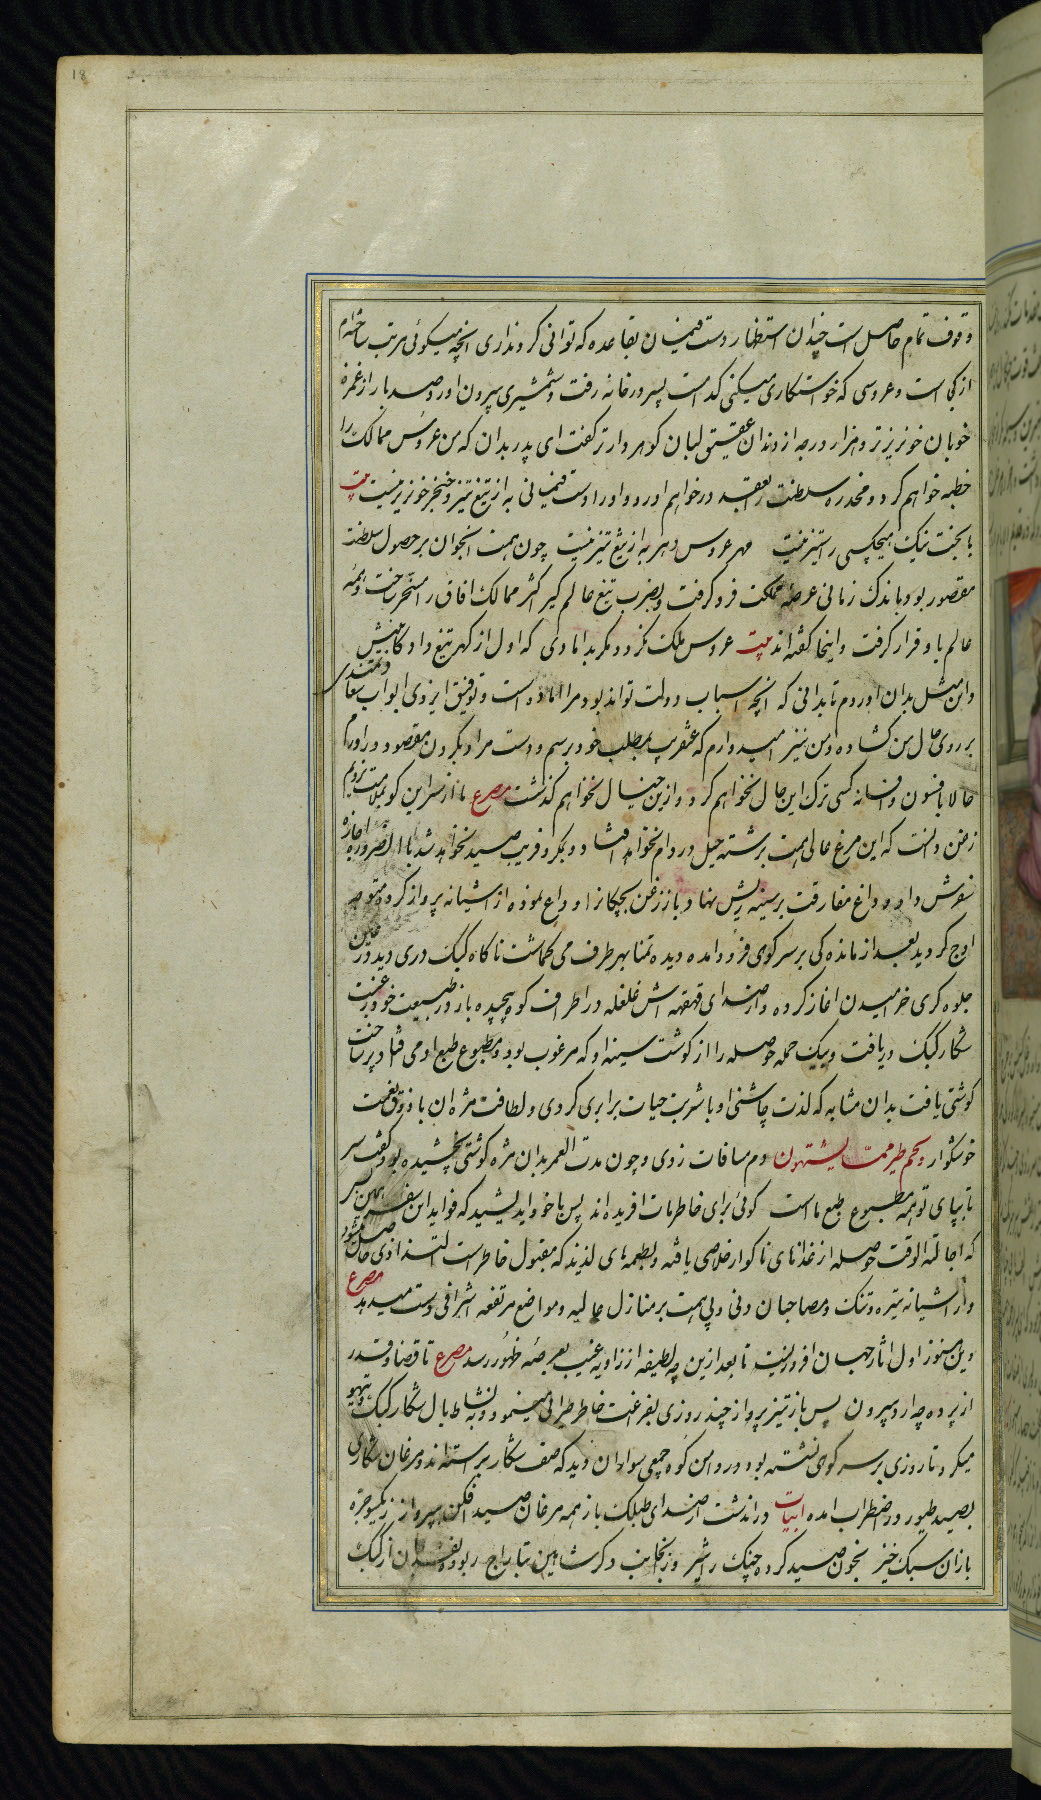 18
وقوف تمام حاصل است چندان استظهار دست پیمان بقاعده که توانی کرد نداری انچه میکوئی مرتب ساخته‌ام
از کجا است و عروسی که خواستکاری میکنی کدام است پسر در خانه رفت و شمشیری بیرون اورد صد بار از غمزه
خوبان خونریزتر و هزار درجه از دندان عقیق لبان کوهردارتر کفت ای پدر بدان که من عروس ممالک را
خطبه خواهم کرد و مخدره سلطنت را بعقد درخواهم اورد و او را دست پیمانی به از تیغ تیز و خنجر خونریز نیست بیت
با بخت نیک هیچکسی را ستیز نیست مهر عروس دهر به از تیغ تیز نیست چون همت انجوان بر حصول سلطنت
مقصور بود باندک زمانی عرصه مملکت فرو کرفت و بضرب تیغ عالم کیر اکثر ممالک افاق را مسخر ساخت و همه
عالم باو قرار کرفت و اینجا کفته‌اند بیت عروس ملک نکرد مکر بدامادی که اول از کهر تیغ داد کابینش
و این مثل بدان اوردم تا بدانی که انچه اسباب دولت تواند بود مرا اماده است و توفیق ایزدی ابواب سعادتمندی
بر روی حال من کشاده و من نیز امیدوارم که عنقریب بمطلب خود برسم و دست مراد بکردن مقصود در اورم
حالا بافسون و افسانه کسی ترک این حال نخواهم کرد و ازین خیال نخواهم کذشت مصرع ما از سر این کو بملامت نرویم
زغن دانست که این مرغ عالی همت برشته حیل در دام نخواهد افتاد و بمکر و فریب صید نخواهد شد بالضروره اجازه
سفرش داد و داغ مفارقت بر سینه ریش نهاد باز زغن و بچکانرا وداع نموده از اشیانه پرواز کرد و متوجه
اوج کردید بعد از ماندکی بر سر کوهی فرود امده دیده تمنا بهر طرف می کماشت ناکاه کبک دری دید در عین
جلوه کری خرامیدن اغاز کرده و از صدای قهقهه اش غلغله در اطراف کوه پیچیده باز در طبیعت خود رغبت
شکار کبک دریافت و بیک حمله حوصله را از کوشت سینه او که مرغوب بود و مطبوع طبع او می افتاد پر ساخت
کوشتی یافت بدان مثابه که لذت چاشنی او با شربت حیات برابری کردی و لطافت مزه ان با ذوق نعمت
خوشکوار و لحم طیر مما یشتهون دم مساوات زدی و چون مدت العمر بدان مزه کوشتی نچشیده بود کفت سر
تا بپای تو همه مطبوع طبع ما است کوئی برای خاطر ما ات افریده اند پس با خود اندیشید که فواید این سفر همین بس
که اجالة الوقت حوصله از غذاهای ناکوار خلاصی یافته و بطعمه های لذیذ که مقبول خاطر است لتذاذی حاصل میشود
و از اشیانه تیره و تنک و مصاحبان دنی و بی همت بر منازل عالیه و مواضع مرتفعه اشرافی دست میدهد مصرع
وین هنوز اول اثار جهان افروزیست تا بعد ازین چه لطیفه از زاویه غیب بعرصه ظهور رسد مصرع تا قضا و قدر
از پرده چه ارد بیرون پس باز تیز پرواز چند روزی بفراغت خاطر طیرانی مینمود و بنشاط بال شکار کبک و تیهو
میکرد تا روزی بر سر کوهی نشسته بود در دامن کوه جمعی سواران دید که صف شکار بر اراسته اند و مرغان شکاری
بصید طیور در اضطراب امده ابیات در اندشت از صدای طبلک باز همه مرغان صید افکن بپرواز ز یکسو جره
بازان سبک خیز بخون صید کرده چنک را تیز وز یکجانب دکر شاهین بتاراج ربوده نقد جان از کبک